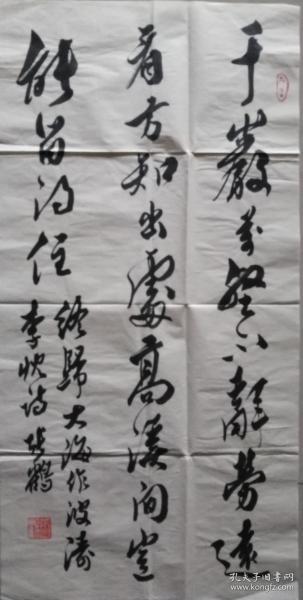 千巖萬壑不辭勞遠
看方知出處高溪澗豈
能留得住
終歸大海作波濤
李忱诗 张鶴
孔夫子旧书网